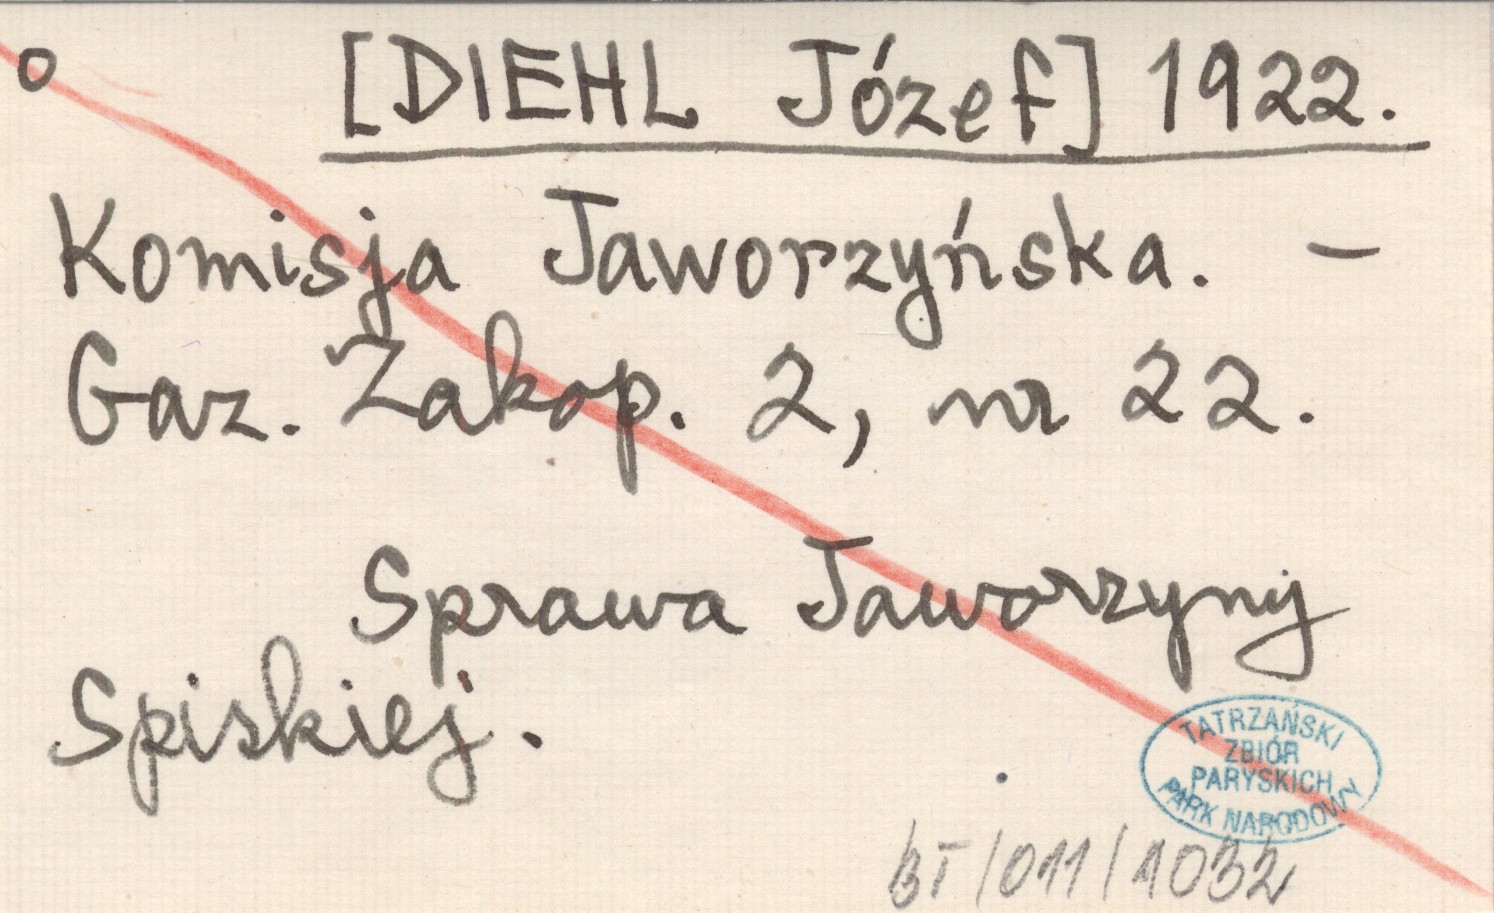 o [DIEHL Józef] 1922.
Komisja Jaworzyńska. –
Gaz. Zakop. 2, nr 22.
Sprawa Jaworzyny
Spiskiej.
TATRZAŃSKI
ZBIÓR
PARYSKICH
PARK NARODOWY
BT/011/1032